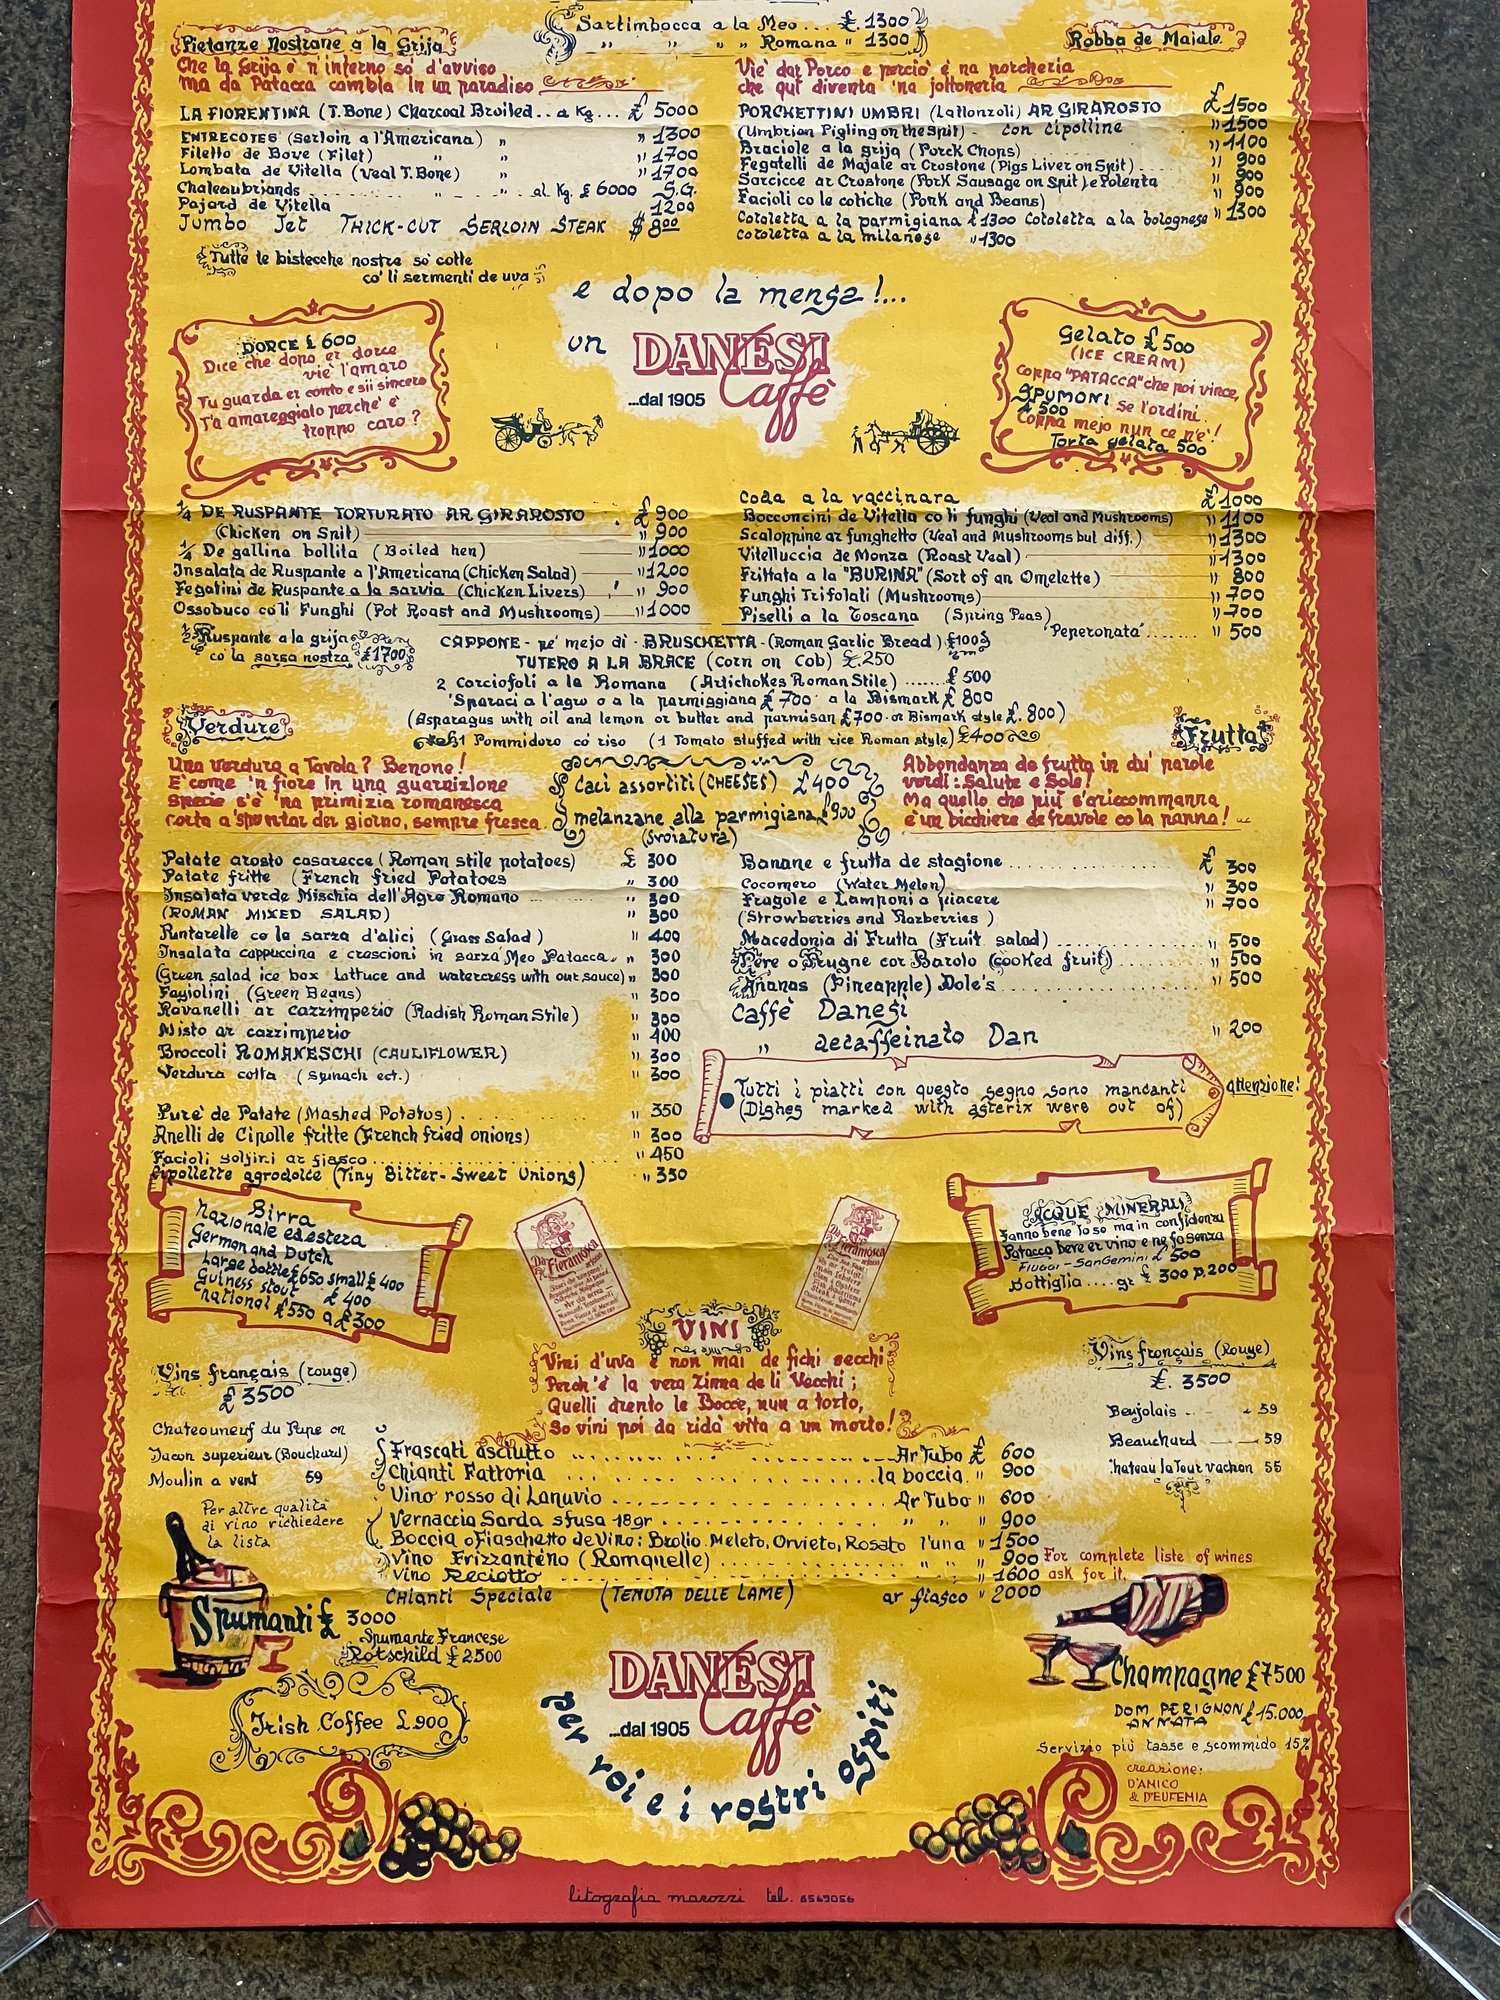 Saltimbocca a la Meo... £. 1300
" " " " Romana " 1300
Pietanze Nostrane a la Grija
Che la Grija è 'n inferno so' d'avviso
ma da Patacca cambia in un paradiso
LA FIORENTINA (T. Bone) Charcoal Broiled.. a Kg... £ 5000
ENTRECOTES (Serloin a l'Americana) " " 1300
Filetto de Bove (Filet) " " " 1700
Lombata de Vitella (Veal T. Bone) " " 1700
Chateaubriands ... " .. al Kg. £ 6000 S.G.
Pajard de Vitella 1200
Jumbo Jet THICK-CUT SERLOIN STEAK $ 8.00
Tutte le bistecche nostre so' cotte
co' li sermenti de uva
Robba de Maiale
Vie' dar Porco e perciò è na porcheria
che qui diventa 'na jottoneria
PORCHETTINI UMBRI (Lattonzoli) AR GIRAROSTO £ 1500
(Umbrian Pigling on the Spit) - con cipolline " 1500
Braciole a la grija (Porck Chops) " 1100
Fegatelli de Majale ar Crostone (Pigs Liver on Spit) " 900
Sarcicce ar Crostone (Pork Sausage on Spit) e Polenta " 900
Facioli co le cotiche (Pork and Beans) " 900
Cotoletta a la parmigiana £ 1300 Cotoletta a la bolognese " 1300
cotoletta a la milanese " 1300
e dopo la mensa!...
un DANESI
Caffè
...dal 1905
DORCE £ 600
Dice che dopo er dorce
vie' l'amaro
Tu guarda er conto e sii sincero
T'à amareggiato perche' è
troppo caro?
Gelato £ 500
(ICE CREAM)
Coppa "PATACCA" che poi vince,
SPUMONI se l'ordini
£ 500
Coppa mejo nun ce n'è!
Torta gelata 500
1/4 DE RUSPANTE TORTURATO AR GIRAROSTO £ 900
(Chicken on Spit) " 900
1/4 De gallina bollita (Boiled hen) " 1000
Insalata de Ruspante a l'Americana (Chicken Salad) " 1200
Fegatini de Ruspante a la sarvia (Chicken Livers) " 900
Ossobuco co li Funghi (Pot Roast and Mushrooms) " 1000
1/2 Ruspante a la grija
co' la sarsa nostra £ 1700
Coda a la vaccinara £ 1000
Bocconcini de Vitella co li funghi (Veal and Mushrooms) " 1100
Scaloppine ar funghetto (Veal and Mushrooms but diff.) " 1300
Vitelluccia de Monza (Roast Veal) " 1300
Frittata a la "BURINA" (Sort of an Omelette) " 800
Funghi Trifolati (Mushrooms) " 700
Piselli a la Toscana (Spring Peas) " 700
"Peperonata" ........ " 500
CAPPONE - pe' mejo di - BRUSCHETTA - (Roman Garlic Bread) £ 100
TUTERO A LA BRACE (corn on Cob) £. 250
2 Carciofoli a la Romana (Artichokes Roman Stile) ...... £ 500
'Sparaci a l'agro o a la parmiggiana £ 700 a la Bismark £ 800
(Asparagus with oil and lemon or butter and parmisan £ 700 - or Bismark style £. 800)
1 Pommidoro co' riso (1 Tomato stuffed with rice Roman style) £ 400
Verdure
Una verdura a Tavola? Benone!
E' come 'n fiore in una guarnizione
Specie s'è 'na primizia romanesca
corta a spuntar der giorno, sempre fresca.
Caci assortiti (CHEESES) £ 400
melanzane alla parmigiana £ 900
(svoiatura)
Frutta
Abbondanza de frutta in du' parole
verdi: Salute e Sole!
Ma quello che più s'ariccommanna
è un bicchiere de fravole co la panna!
Patate arosto casarecce (Roman stile potatoes) £ 300
Patate fritte (French fried Potatoes " 300
Insalata verde Mischia dell'Agro Romano " 300
(ROMAN MIXED SALAD) " 300
Puntarelle co la sarza d'alici (Grass Salad) " 400
Insalata cappuccina e croscioni in sarza Meo Patacca. " 300
(Green salad ice box Lattuce and watercress with our sauce) " 300
Fagiolini (Green Beans) " 300
Ravanelli ar cazzimperio (Radish Roman Stile) " 300
Misto ar cazzimperio " 400
Broccoli ROMANESCHI (CAULIFLOWER) " 300
Verdura cotta (Spinach ect.) " 300
Pure' de Patate (Mashed Potatos) " 350
Anelli de Cipolle fritte (French fried onions) " 300
Facioli solfini ar fiasco " 450
Cipollette agrodolce (Tiny Bitter-Sweet Unions) " 350
Banane e frutta de stagione £ 300
Cocomero (Water Melon) " 300
Fragole e Lamponi a piacere " 700
(Strowberries and Razberries)
Macedonia di Frutta (Fruit salad) " 500
Pere o Prugne cor Barolo (cooked fruit) " 500
Ananas (Pineapple) Dole's " 500
Caffè Danesi
" decaffeinato Dan " 200
Tutti i piatti con questo segno sono mancanti
(Dishes marked with asterix were out of)
attenzione!
Birra
Nazionale ed estera
German and Dutch
Large bottle £ 650 small £ 400
Guiness stout £ 400
national £ 550 a £ 300
Da Fieramosca
Da Fieramosca
ACQUE MINERALI
Fanno bene lo so ma in confidenza
Patacca beve er vino e ne fa senza
FIUGGI - SANGEMINI £ 500
Bottiglia .... gr. £ 300 p. 200
VINI
Vini d'uva e non mai de fichi secchi
Perch'è la vera Zinna de li Vecchi;
Quelli drento le Bocce, nun a torto,
So vini poi da ridà vita a un morto!
Vins français (rouge)
£ 3500
Chateauneuf du Pape
Macon superieur (Bouchard)
Moulin a vent 59
Per altre qualità
di vino richiedere
la lista
Vins français (Rouge)
£. 3500
Beujolais .. - 59
Beauchard 59
Chateau la Tour vachon 55
Frascati asciutto Ar Tubo £ 600
Chianti Fattoria la boccia. " 900
Vino rosso di Lanuvio Ar Tubo " 600
Vernaccia Sarda sfusa 18gr " " " 900
Boccia o Fiaschetto de Vino: Brolio, Meleto, Orvieto, Rosato l'una " 1500
Vino Frizzanteno (Romanelle) " " 900
Vino Reciotto " 1600
CHIANTI Speciale (TENUTA DELLE LAME) ar fiasco " 2000
For complete liste of wines
ask for it.
Spumanti £ 3000
Spumante Francese
Rotschild £ 2500
Irish Coffee £. 900
DANESI
Caffè
...dal 1905
per voi e i vostri ospiti
Champagne £ 7500
DOM PERIGNON £ 15.000
ANNATA
Servizio più tasse e scommido 15%
creazione:
D'AMICO
& D'EUFEMIA
litografia marozzi tel. 6569056